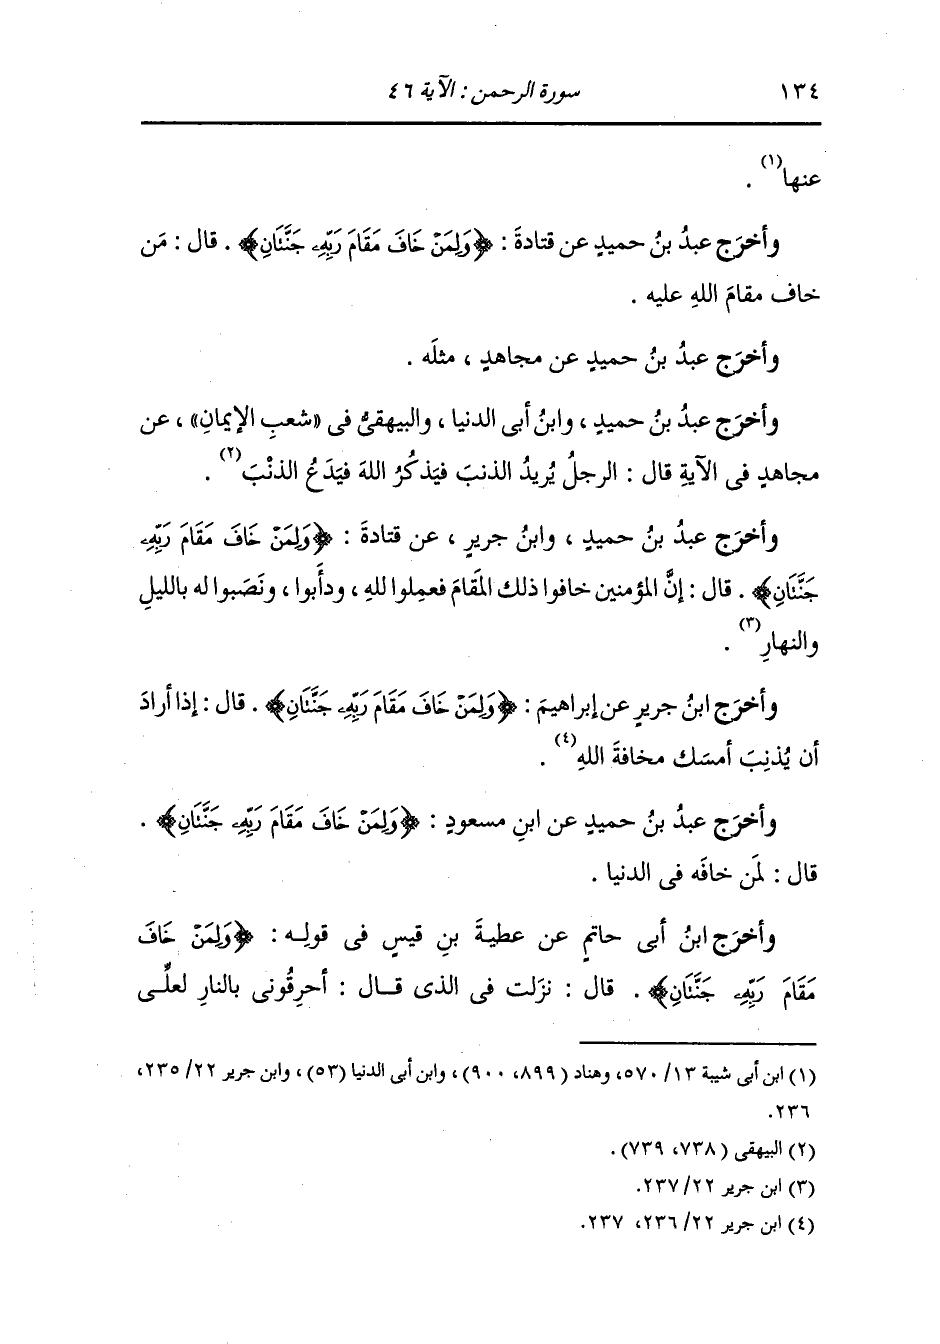 ١٣٤ سورة الرحمن : الآية ٤٦
عنها(١) .
وأخرَج عبدُ بنُ حميدٍ عن قتادةَ : ﴿وَلِمَنْ خَافَ مَقَامَ رَبِّهِۦ جَنَّتَانِ﴾ . قال : مَن
خاف مقامَ اللهِ عليه .
وأخرَج عبدُ بنُ حميدٍ عن مجاهدٍ ، مثلَه .
وأخرَج عبدُ بنُ حميدٍ ، وابنُ أبى الدنيا ، والبيهقىُّ فى «شعبِ الإيمانِ» ، عن
مجاهدٍ فى الآيةِ قال : الرجلُ يُريدُ الذنبَ فيَذكُرُ اللهَ فيَدَعُ الذنْبَ(٢) .
وأخرَج عبدُ بنُ حميدٍ ، وابنُ جريرٍ ، عن قتادةَ : ﴿وَلِمَنْ خَافَ مَقَامَ رَبِّهِۦ
جَنَّتَانِ﴾ . قال : إنَّ المؤمنين خافوا ذلك المَقامَ فعمِلوا للهِ ، ودأَبوا ، ونَصَبوا له بالليلِ
والنهارِ(٣) .
وأخرَج ابنُ جريرٍ عن إبراهيمَ : ﴿وَلِمَنْ خَافَ مَقَامَ رَبِّهِۦ جَنَّتَانِ﴾ . قال : إذا أرادَ
أن يُذنِبَ أمسَك مخافةَ اللهِ(٤) .
وأخرَج عبدُ بنُ حميدٍ عن ابنِ مسعودٍ : ﴿وَلِمَنْ خَافَ مَقَامَ رَبِّهِۦ جَنَّتَانِ﴾ .
قال : لمَن خافَه فى الدنيا .
وأخرَج ابنُ أبى حاتمٍ عن عطيةَ بنِ قيسٍ فى قولِه : ﴿وَلِمَنْ خَافَ
مَقَامَ رَبِّهِۦ جَنَّتَانِ﴾ . قال : نزَلت فى الذى قال : أحرِقُونى بالنارِ لعلِّى
(١) ابن أبى شيبة ١٣/ ٥٧٠، وهناد (٨٩٩، ٩٠٠) ، وابن أبى الدنيا (٥٣) ، وابن جرير ٢٢/ ٢٣٥،
٢٣٦.
(٢) البيهقى (٧٣٨، ٧٣٩) .
(٣) ابن جرير ٢٢/ ٢٣٧.
(٤) ابن جرير ٢٢/ ٢٣٦، ٢٣٧.